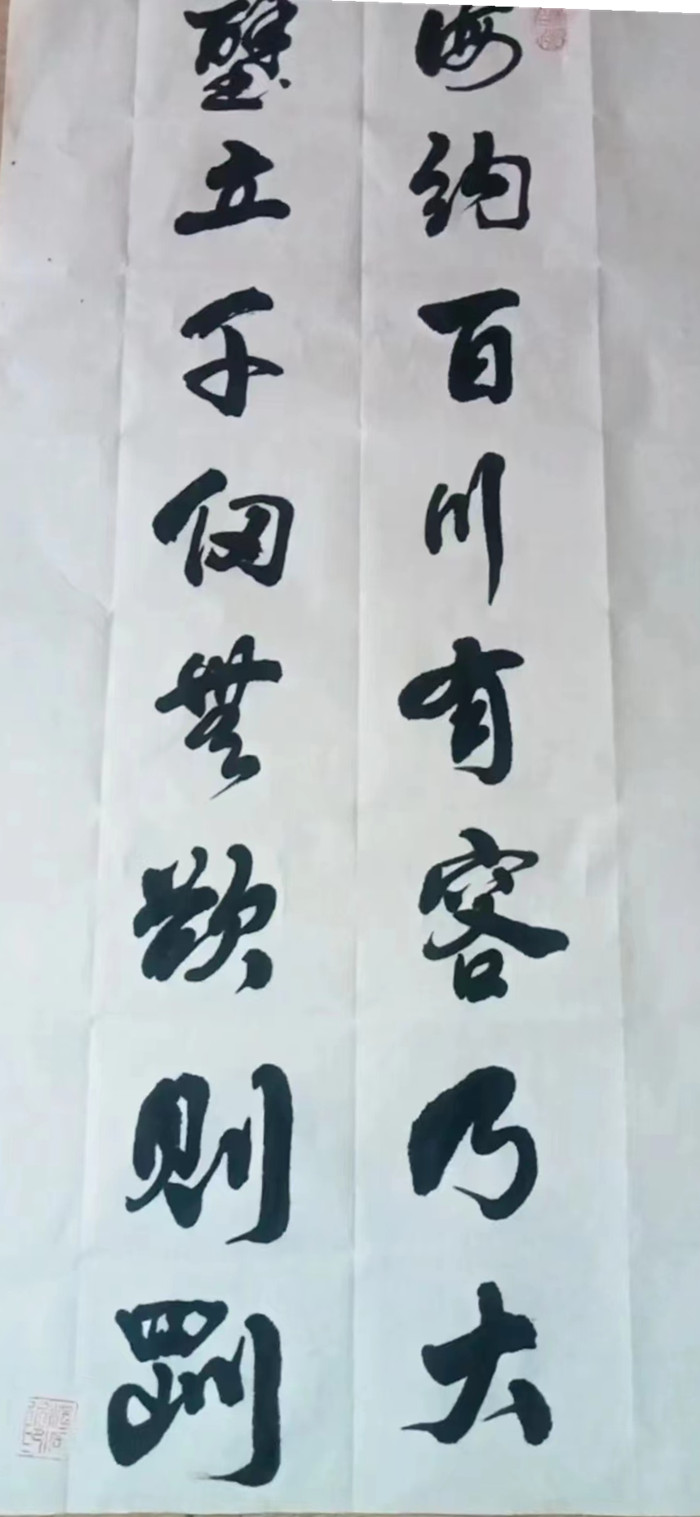 海納百川有容乃大
壁立千仞無欲则剛